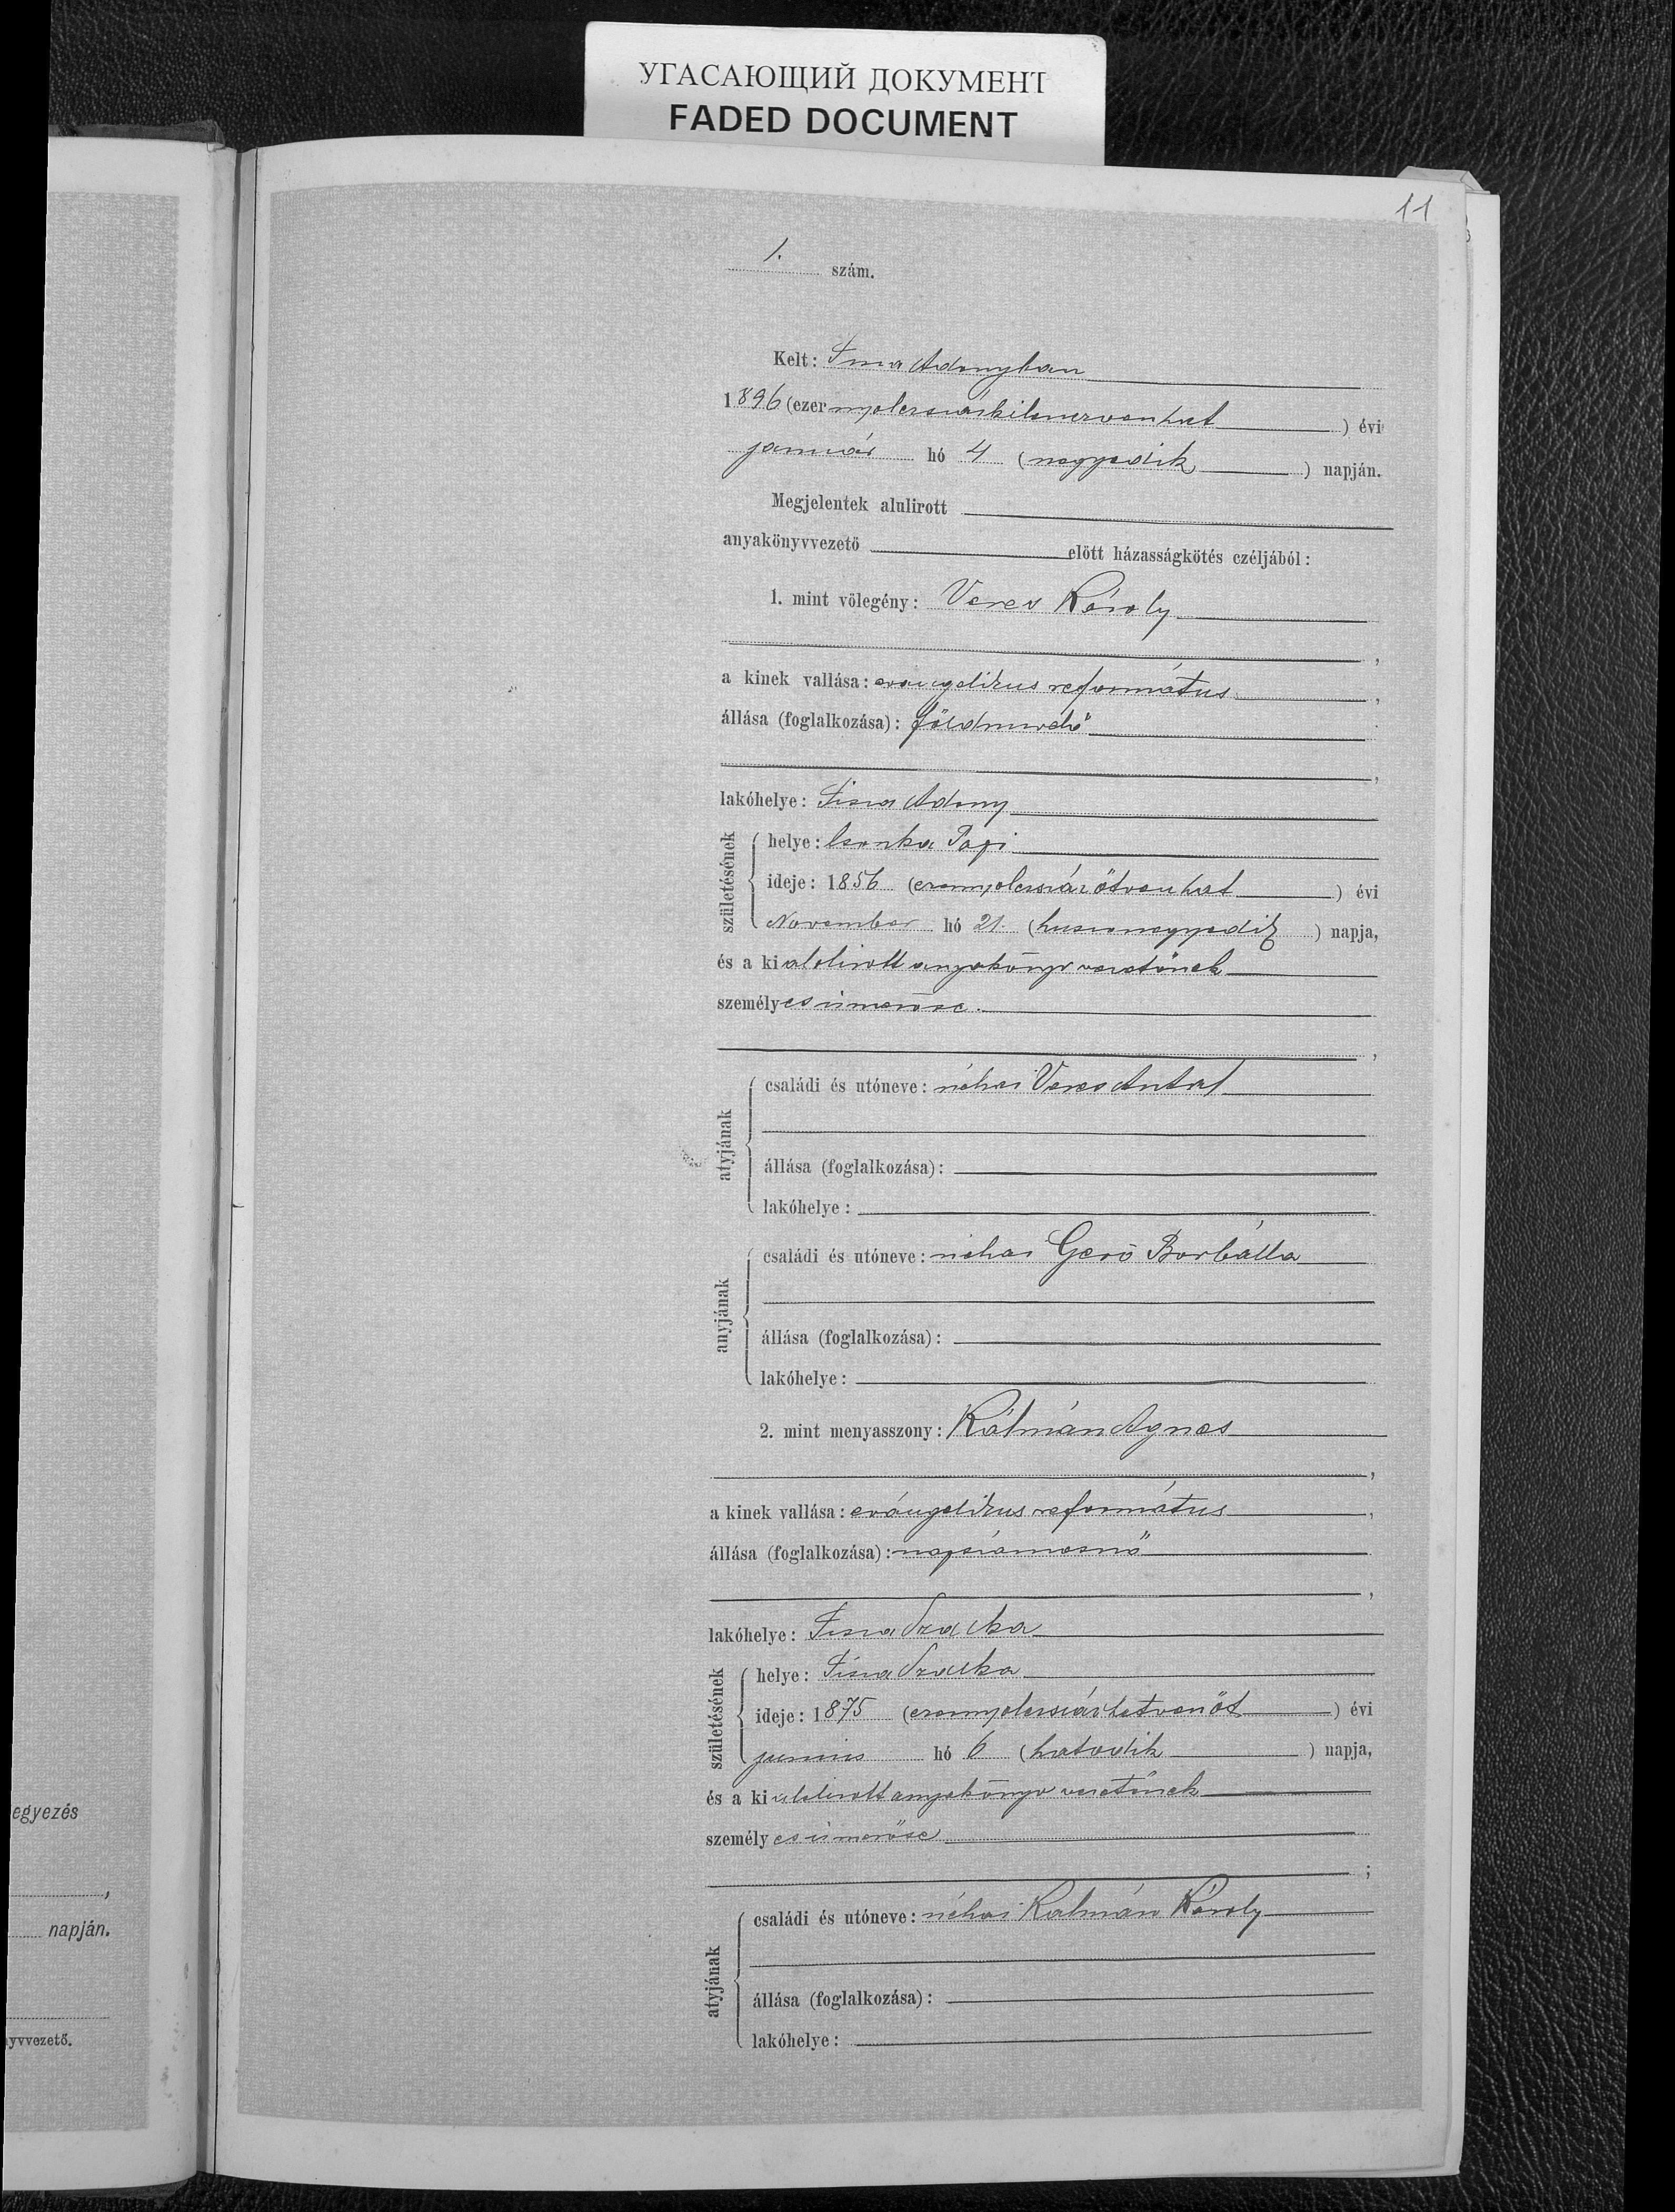 УГАСАЮЩИЙ ДОКУМЕНТ
FADED DOCUMENT
11
1. szám.
Kelt: Tisza Adonyban
1896 (ezer nyolcszázkilenczvenhat) évi
január hó 4 (negyedik) napján.
Megjelentek alulirott
anyakönyvvezető előtt házasságkötés czéljából:
1. mint völegény: Veres Károly
,
a kinek vallása: evangelikus református,
állása (foglalkozása): földmivelő
,
lakóhelye: Tisza Adony
születésének
helye: Csonka Papi
ideje: 1856 (ezernyolcszáz ötvenhat) évi
November hó 21. (huszonegyedik) napja,
és a ki alolirott anyakönyv vezetőnek
személyes ismerőse.
,
atyjának
családi és utóneve: néhai Veres Antal
állása (foglalkozása):
lakóhelye:
anyjának
családi és utóneve: néhai Gerő Borbálla
állása (foglalkozása):
lakóhelye:
2. mint menyasszony: Kálmán Agnes
,
a kinek vallása: evángelikus református,
állása (foglalkozása): napszámosnő
,
lakóhelye: Tisza Szalka
születésének
helye: Tisza Szalka
ideje: 1875 (ezernyolcszáz hetvenöt) évi
junius hó 6 (hatodik) napja,
és a ki alolirott anyakönyv vezetőnek
személyes ismerőse
;
atyjának
családi és utóneve: néhai Kálmán Károly
állása (foglalkozása):
lakóhelye:
egyezés
,
napján.
yvvezető.